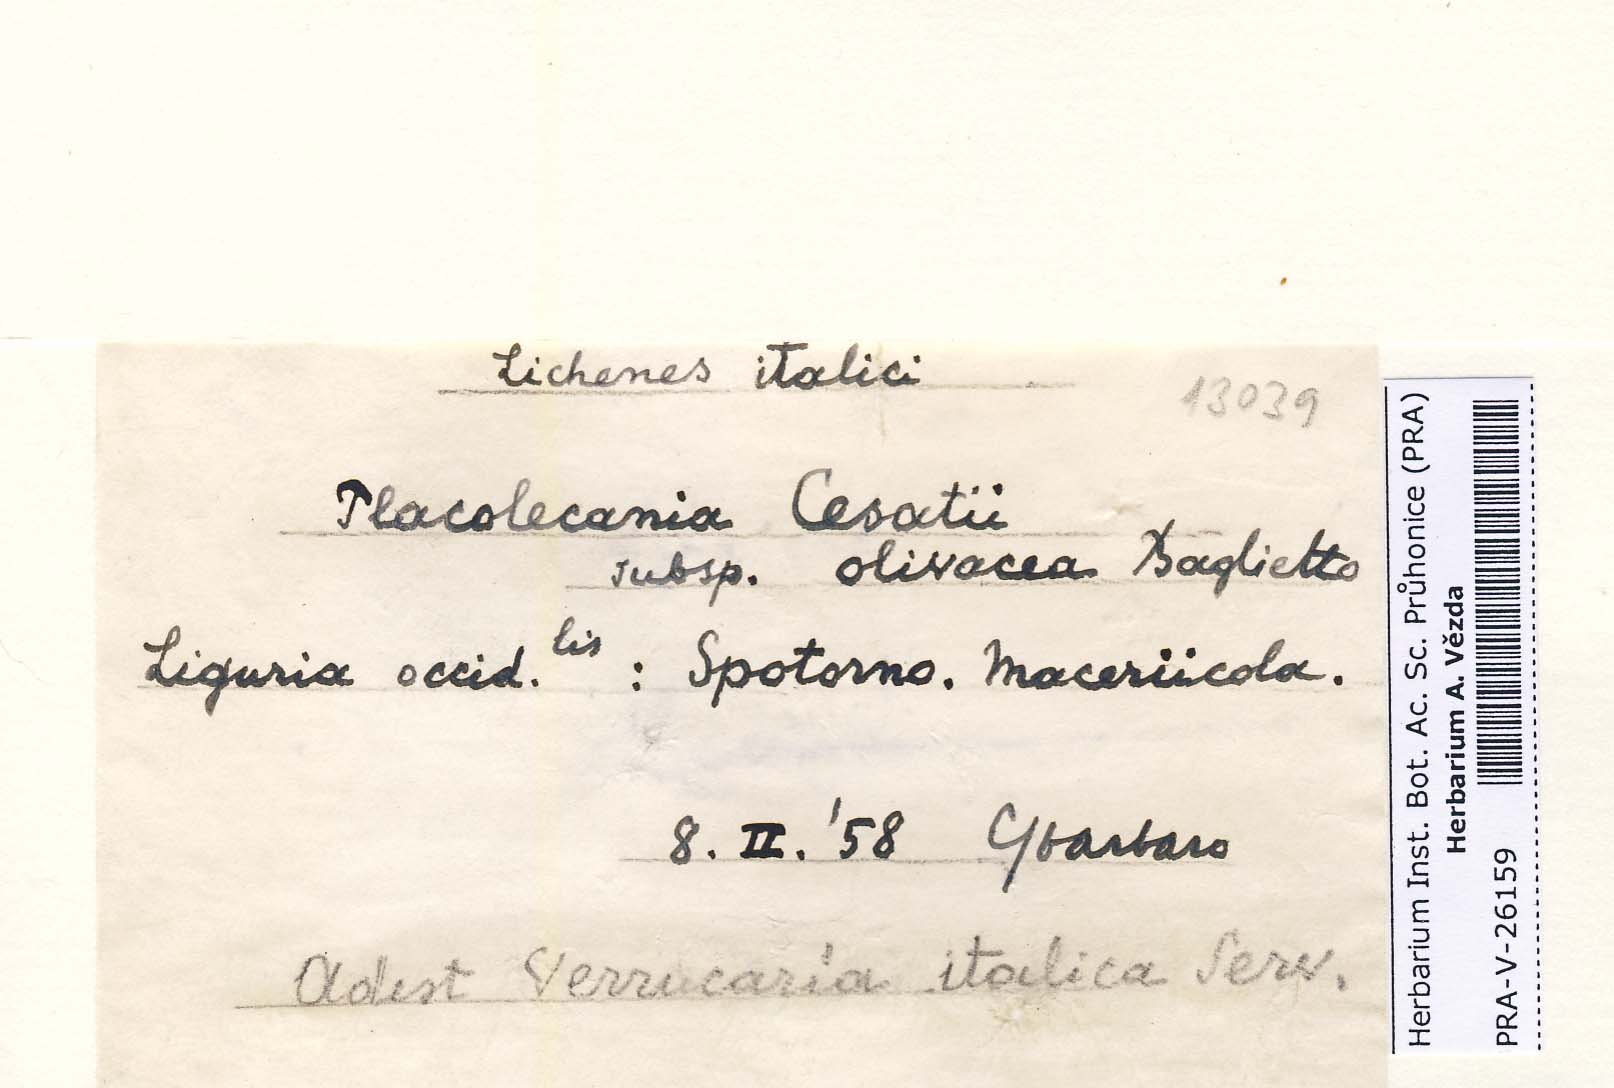 Lichenes italici
13039
Placolecania Cesatii
subsp. olivacea Baglietto
Liguria occid.lis : Spotorno. Maceriicola.
8. II. '58 Gbarbaro
Adest Verrucaria italica Serv.
Herbarium Inst. Bot. Ac. Sc. Průhonice (PRA)
Herbarium A. Vězda
PRA-V-26159